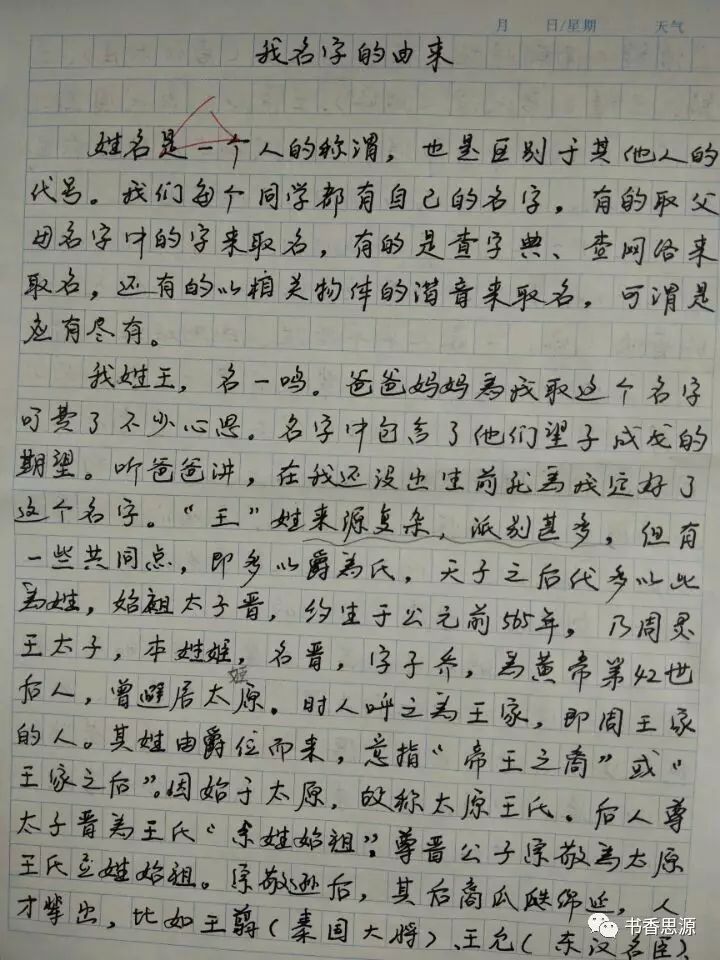 月 日/星期 天气
我名字的由来
姓名是一个人的称谓，也是区别于其他人的
代号。我们每个同学都有自己的名字，有的取父
母名字中的字来取名，有的是查字典、查网络来
取名，还有的以相关物体的谐音来取名，可谓是
应有尽有。
我姓王，名一鸣。爸爸妈妈为我取这个名字
可费了不少心思。名字中包含了他们望子成龙的
期望。听爸爸讲，在我还没出生前就为我定好了
这个名字。“王”姓来源复杂，派别甚多，但有
一些共同点，即多以爵为氏，天子之后代多以此
为姓，始祖太子晋，约生于公元前565年，乃周灵
王太子，本姓姬，名晋，字子乔，为黄帝第42世
姬
后人，曾避居太原。时人呼之为王家，即周王家
的人。其姓由爵位而来，意指“帝王之裔”或“
王家之后”。因始于太原，故称太原王氏。后人尊
太子晋为王氏“系姓始祖”，尊晋公子宗敬为太原
王氏立姓始祖。宗敬逊后，其后裔瓜瓞绵延，人
才辈出，比如王翦（秦国大将）、王允（东汉名臣）、
书香思源